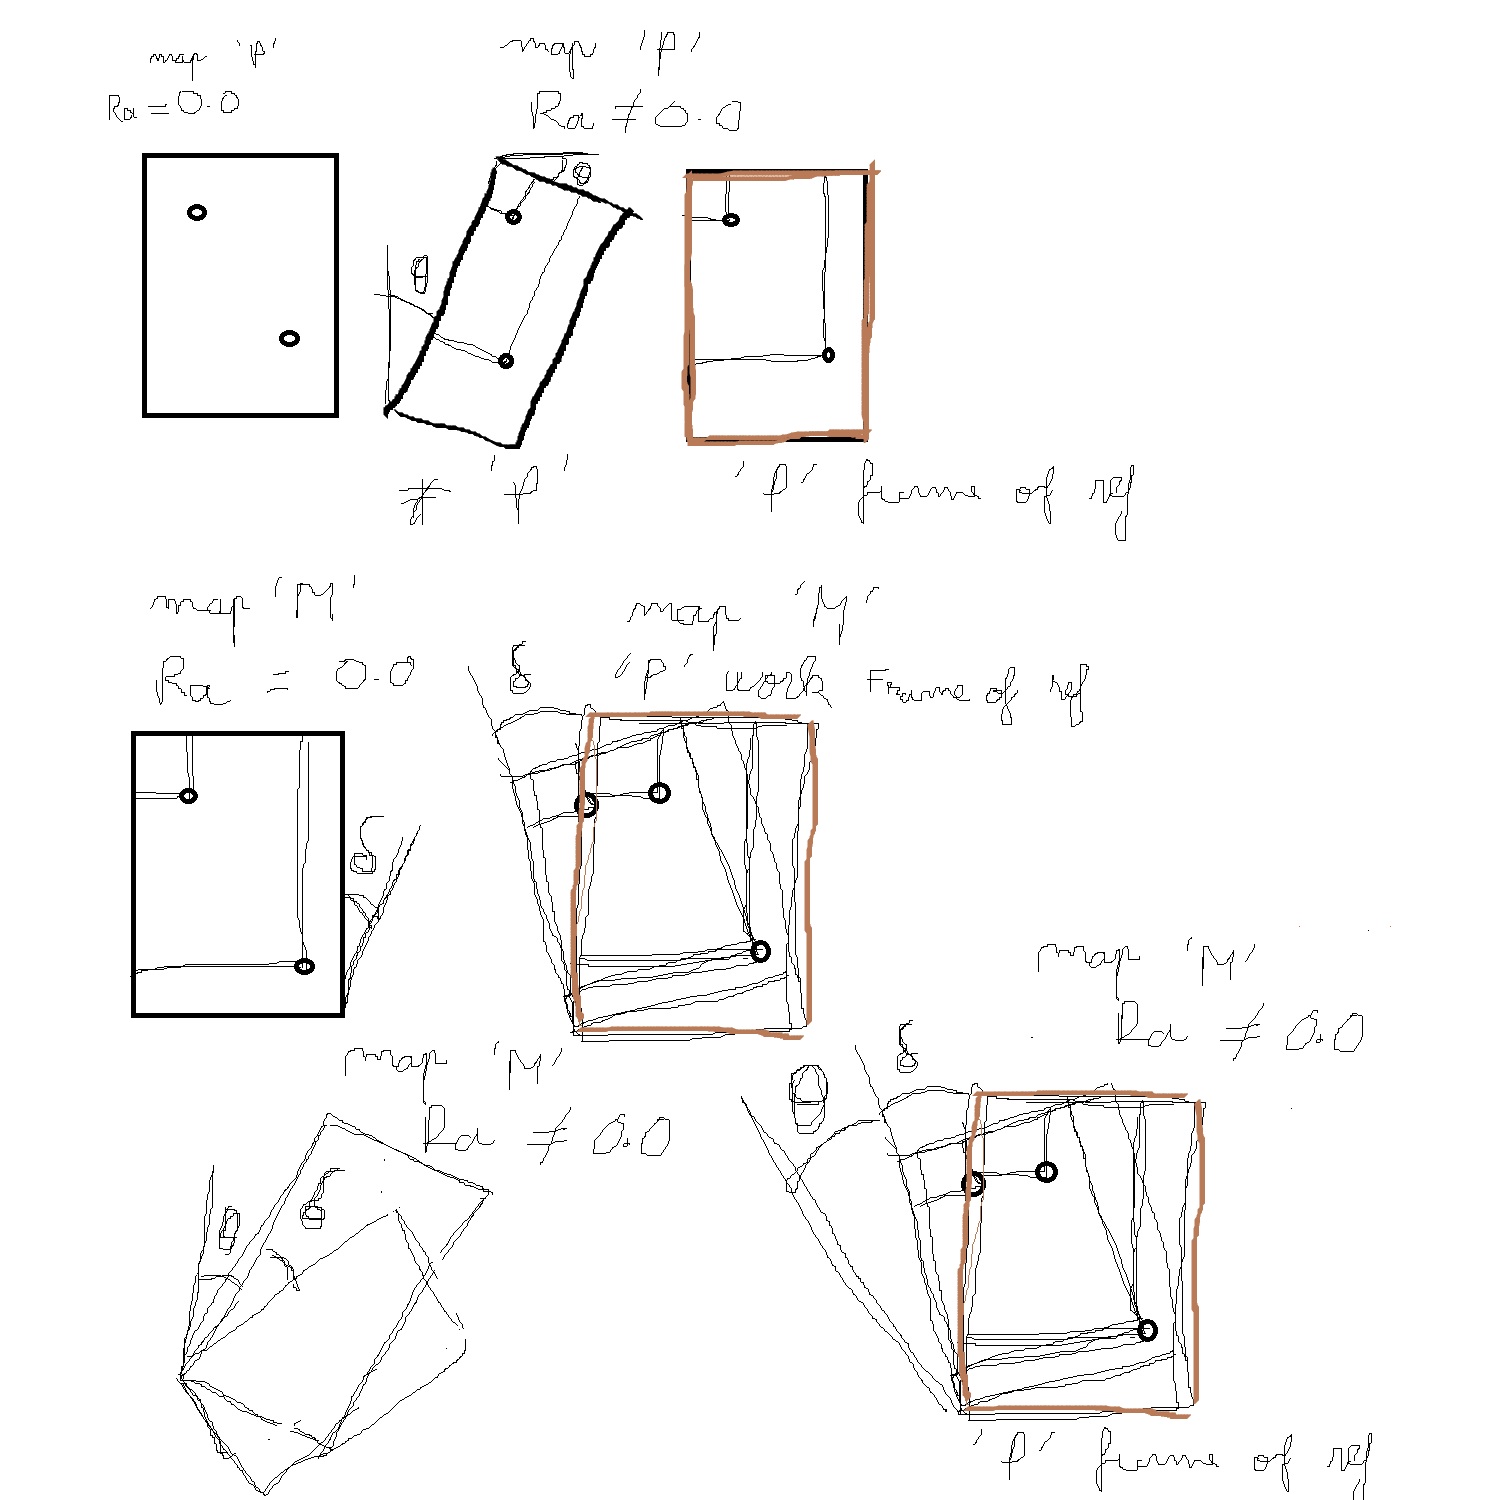 map 'P'
Ra = 0.0
map 'P'
Ra ≠ 0.0
θ
θ
≠ 'P'
'P' frame of ref
map 'M'
Ra = 0.0
δ
map 'M'
'P' work Frame of ref
δ
map 'M'
Ra ≠ 0.0
θ
δ
map 'M'
Ra ≠ 0.0
θ
δ
'P' frame of ref